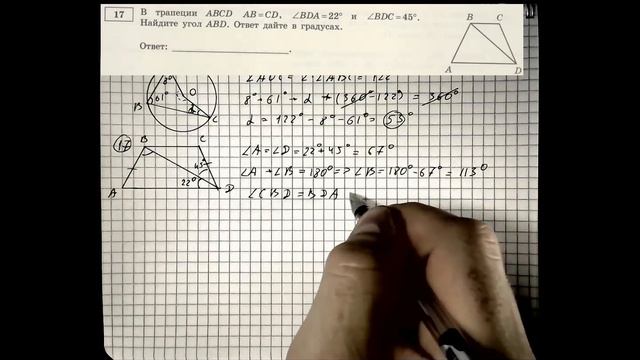 17
В трапеции ABCD AB=CD, ∠BDA=22° и ∠BDC=45°.
Найдите угол ABD. Ответ дайте в градусах.
Ответ:
B C
A D
8° O
B 61° α C
8° + 61° + α + (360° - 122°) = 360°
α = 122° - 8° - 61° = 53°
17 B C
45°
22°
A D
∠A = ∠D = 22° + 45° = 67°
∠A + ∠B = 180° => ∠B = 180° - 67° = 113°
∠CBD = BDA